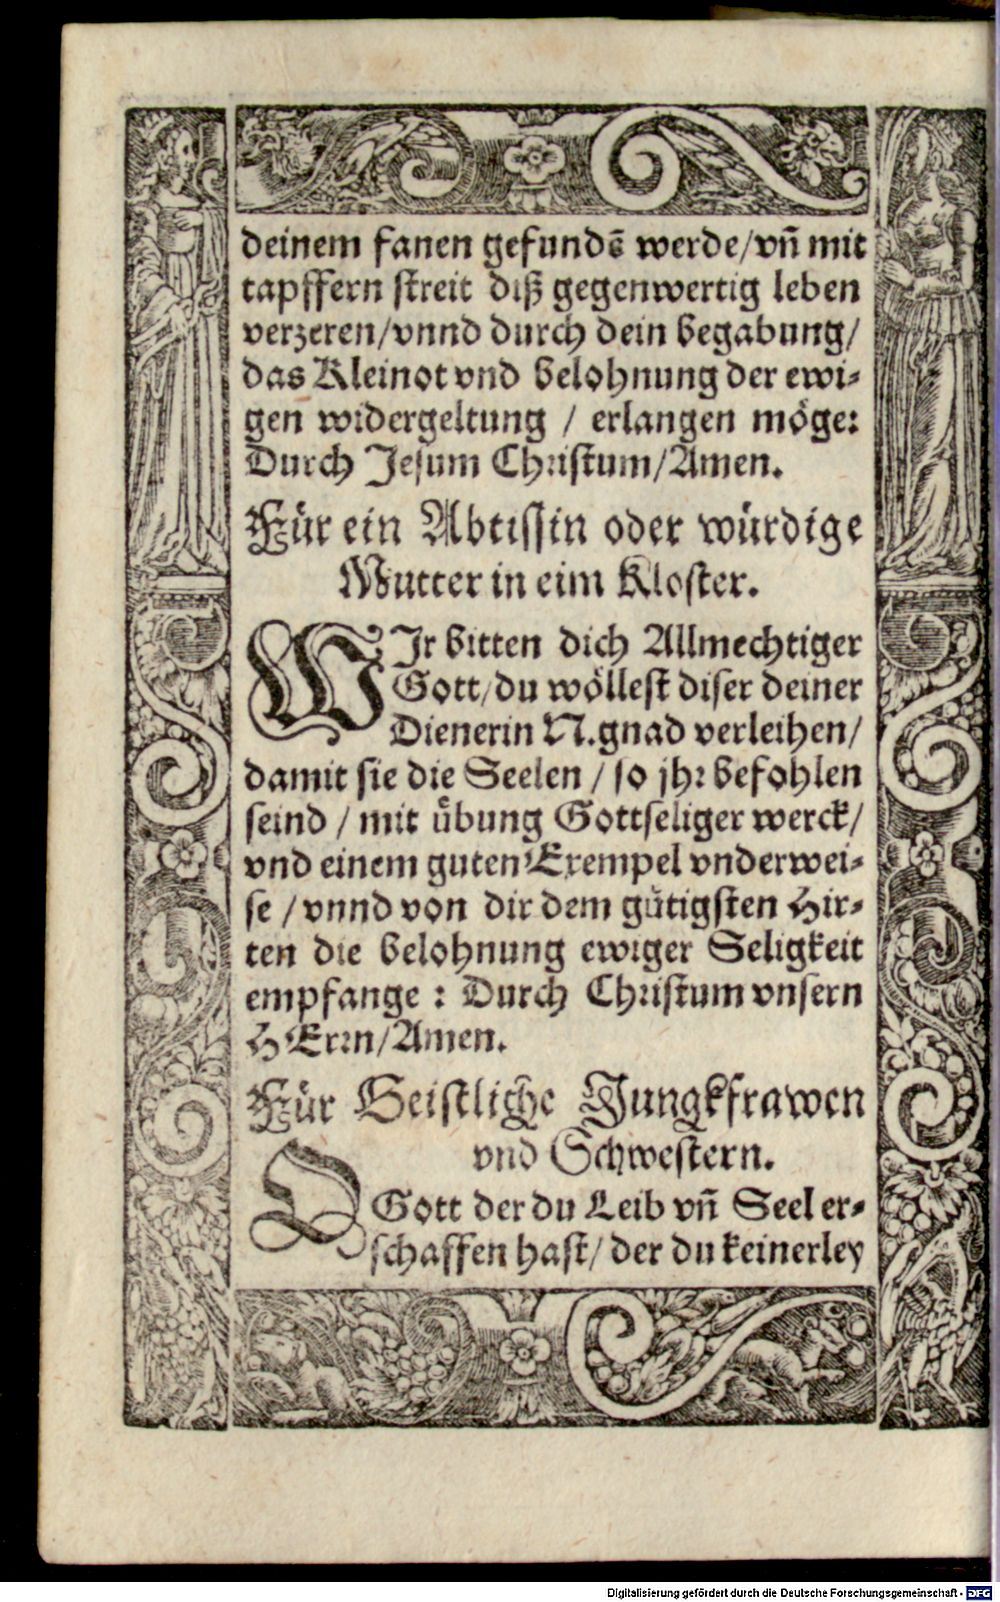 deinem fanen gefundē werde/vñ mit
tapffern streit diß gegenwertig leben
verzeren/vnnd durch dein begabung/
das Kleinot vnd belohnung der ewi⸗
gen widergeltung / erlangen möge:
Durch Jesum Christum/Amen.
Für ein Abtissin oder würdige
Mutter in eim Kloster.
WIr bitten dich Allmechtiger
Gott/du wöllest diser deiner
Dienerin N.gnad verleihen/
damit sie die Seelen / so jhr befohlen
seind / mit übung Gottseliger werck/
vnd einem guten Exempel vnderwei⸗
se / vnnd von dir dem gütigsten Hir⸗
ten die belohnung ewiger Seligkeit
empfange : Durch Christum vnsern
HErrn/Amen.
Für Geistliche Jungkfrawen
vnd Schwestern.
O Gott der du Leib vñ Seel er⸗
schaffen hast/ der du keinerley
Digitalisierung gefördert durch die Deutsche Forschungsgemeinschaft - DFG